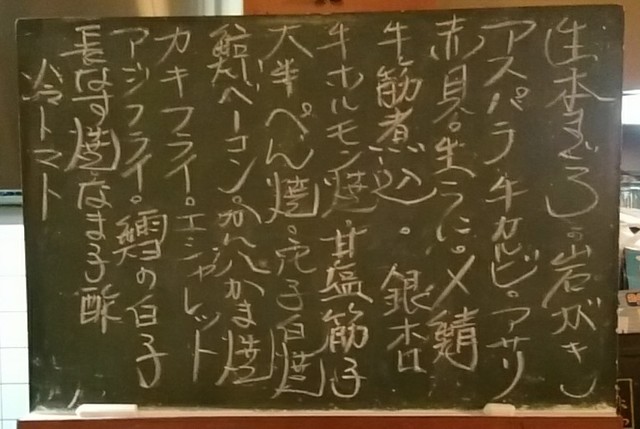 生本まぐろ。岩がき
アスパラ牛カルビ。アサリ
赤貝。生うに。〆鯖
牛筋煮込。銀杏
牛ホルモン焼。甘塩筋子
大半ぺん焼。穴子白焼
鯨ベーコン。かん八かま焼
カキフライ。エシャレット
アジフライ。鱈の白子
長なす焼。なま子酢
冷トマト